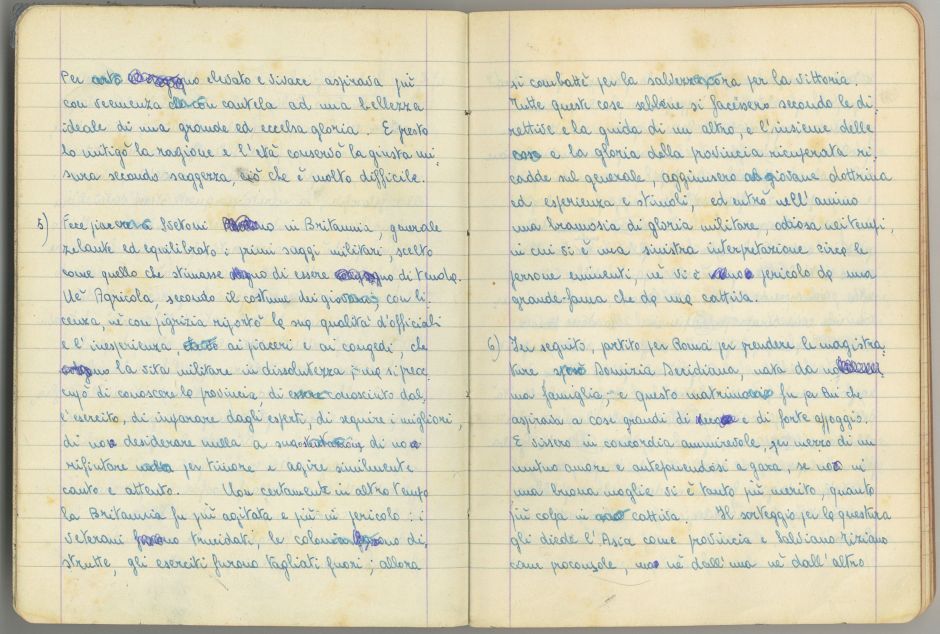 Per elevato e vivace aspirava più
con veemenza che con cautela ad una bellezza
ideale di una grande ed eccelsa gloria. E presto
lo mitigò la ragione e l'età conservò la giusta mi
sura secondo saggezza, ciò che è molto difficile.
5) Fece piacere a Svetoni in Britannia, generale
zelante ed equilibrato i primi saggi militari, scelto
come quello che stimasse degno di essere di tenda.
Né Agricola, secondo il costume dei giovani, con li
cenza, né con pigrizia riportò la sua qualità d'officiali
e l'inesperienza, ai piaceri e ai congedi, che
la vita militare in dissolutezza; ma si preoc
cupò di conoscere la provincia, di essere conosciuto dal
l'esercito, di imparare dagli esperti, di seguire i migliori,
di non desiderare nulla a sua di non
rifiutare nulla per timore e agire similmente
cauto e attento. Non certamente in altro tempo
la Britannia fu più agitata e più in pericolo: i
veterani trucidati, le colonie di
strutte, gli eserciti furono tagliati fuori; allora
si combatté per la salvezza ora per la vittoria.
Tutte queste cose sebbene si facessero secondo le di
rettive e la guida di un altro, e l'insieme delle
cose e la gloria della provincia ricuperata ri
cadde sul generale, aggiunsero al giovane dottrina
ed esperienza e stimoli, ed entrò nell'animo
una bramosia di gloria militare, odiosa nei tempi,
in cui vi è una sinistra interpretazione circa le
persone eminenti, né vi è meno pericolo da una
grande fama che da una cattiva.
6) In seguito, partito per Roma per prendere le magistra
ture sposò Domizia Deridiana, nata da
mai famiglia, e questo matrimonio fu per lui che
aspirava a cose grandi di e di forte appoggio.
E vissero in concordia ammirevole, per mezzo di un
mutuo amore e anteponendosi a gara, se non in
una buona moglie vi è tanto più merito, quanto
più colpa in una cattiva. Il sorteggio per la questura
gli diede l'Asia come provincia e Salviano Tiziano
come proconsole, ma né dall'una né dall'altro